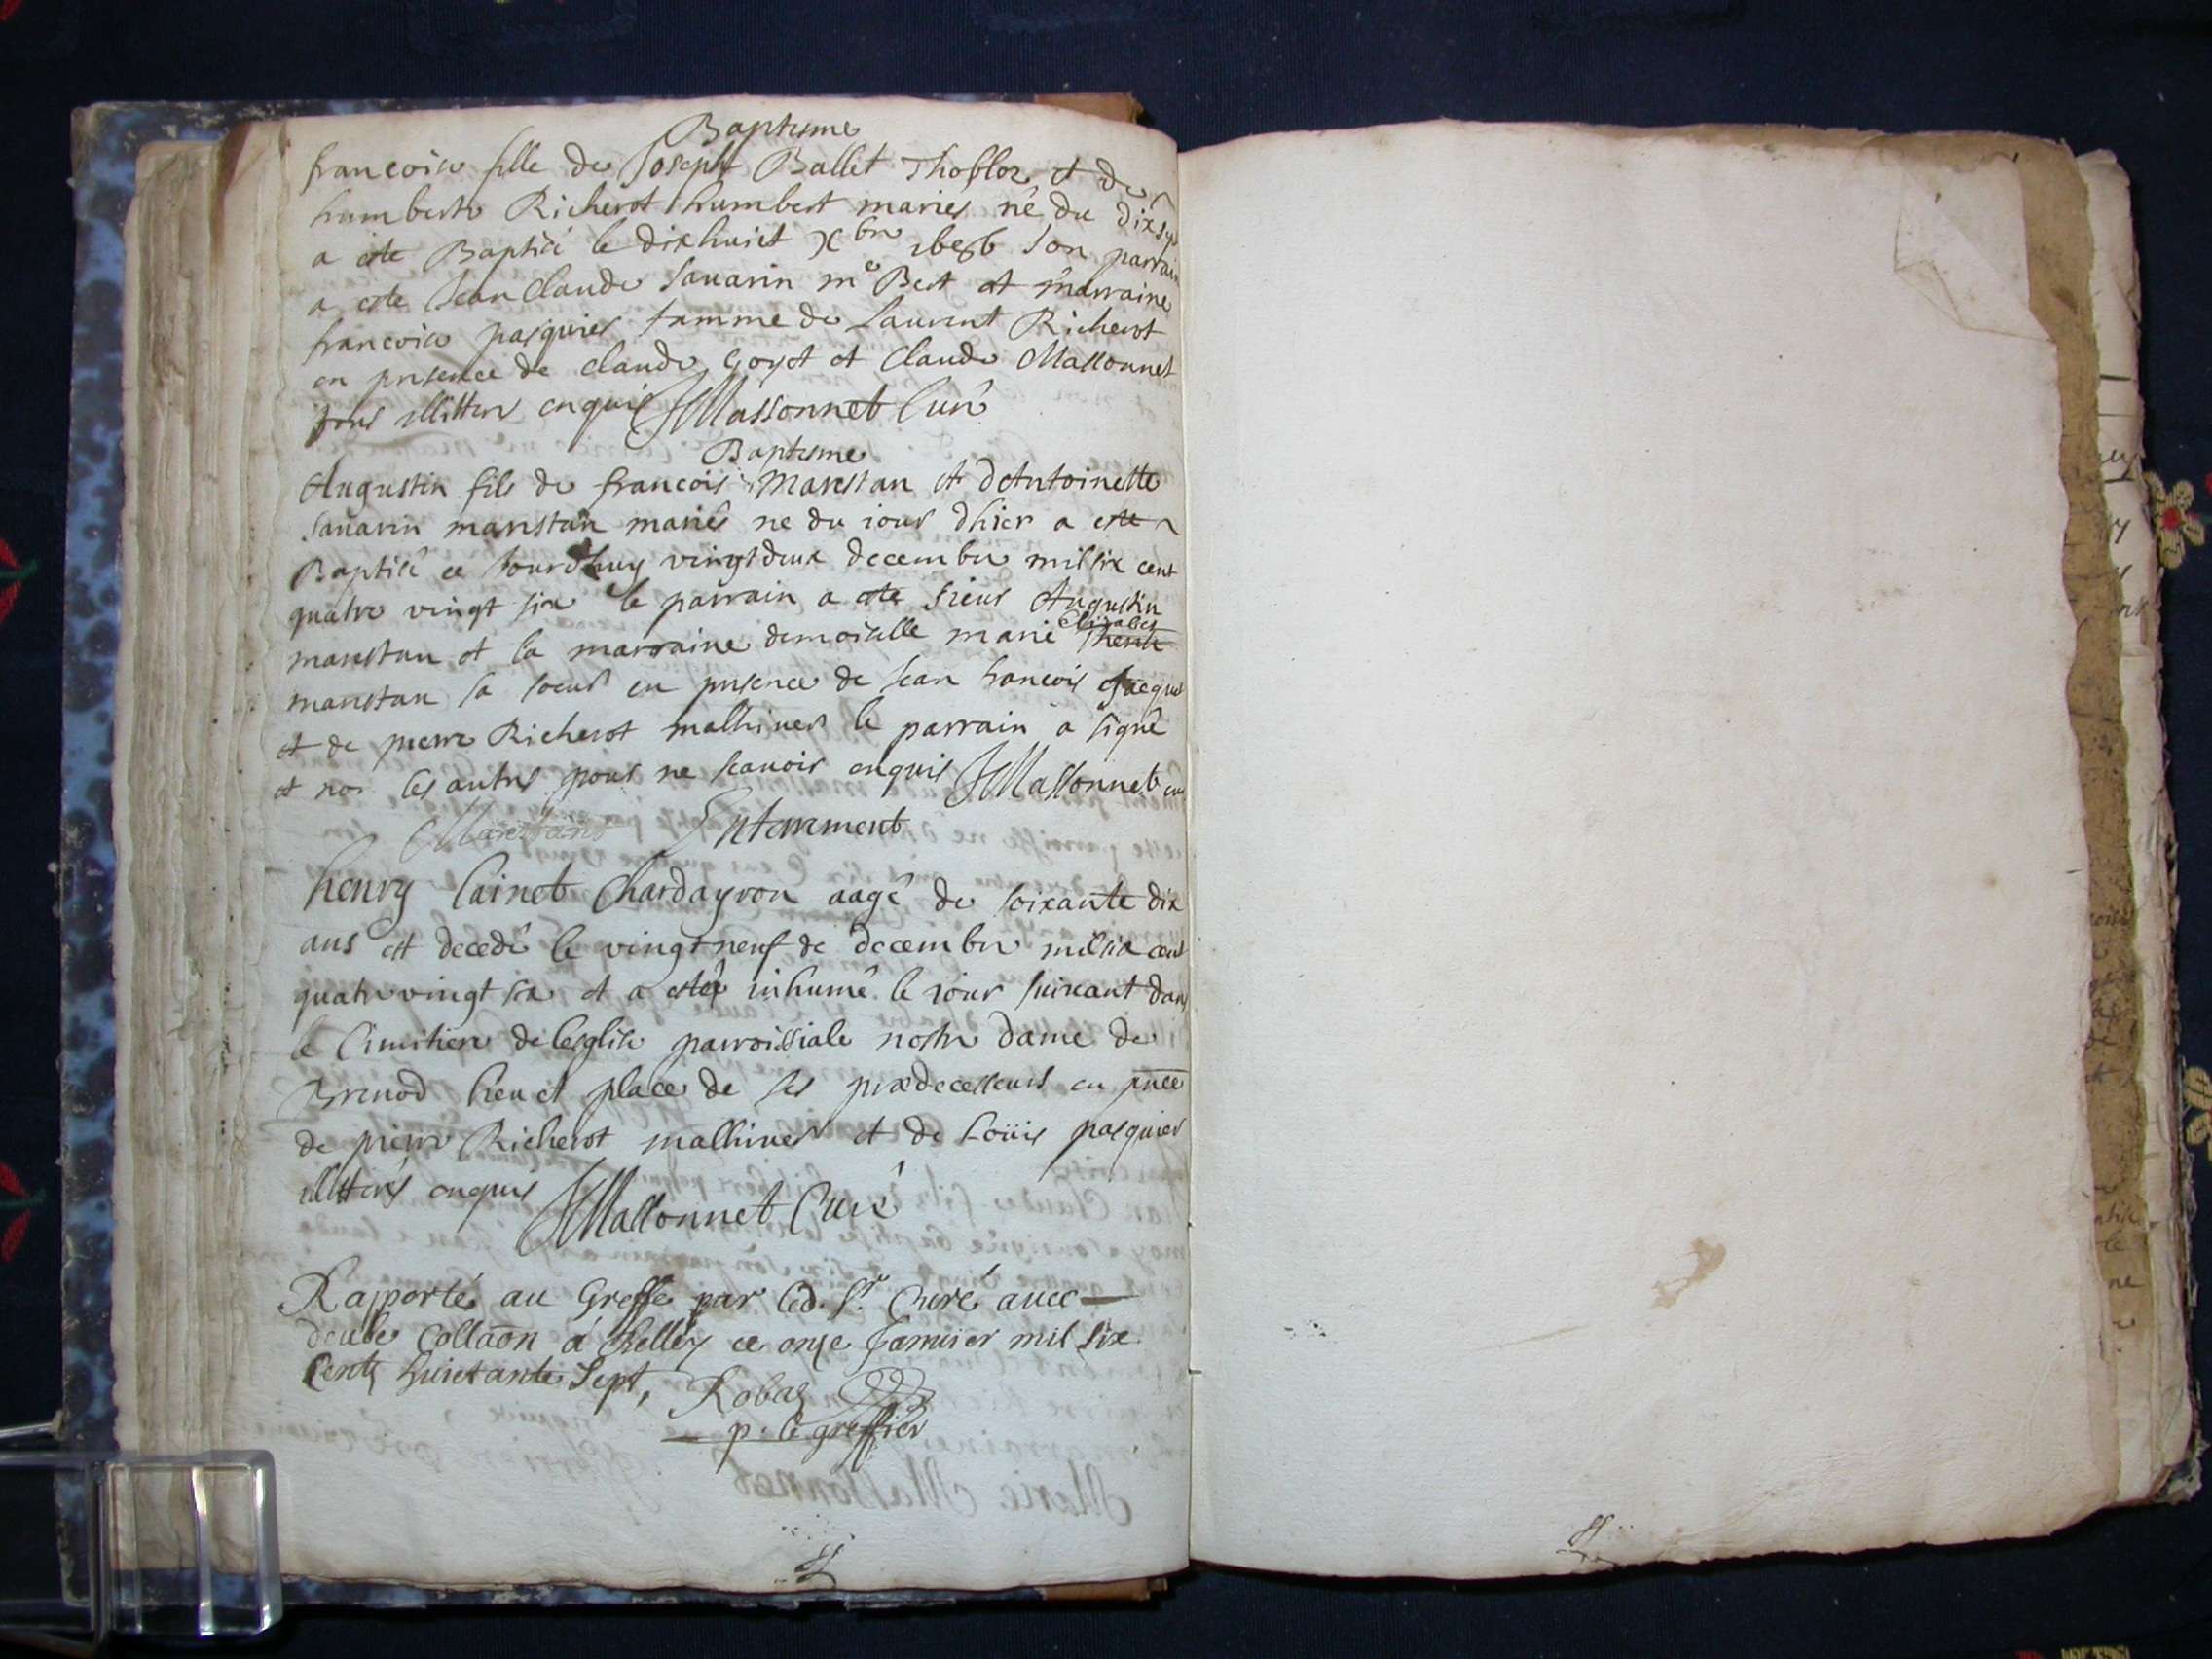 Baptesme
francoise fille de Joseph Ballet Thobloz et de
humberte Richerot humbert maries né du dixsept
a este Baptisé le dixhuict Xbre 1686 son parrain
a este Jean Claude Sauarin me Best et marraine
francoise pasquier famme de Laurent Richerot
en presence de claude Goyot et Claude Massonnet
tous illitterés enquis JMassonnet Curé
Baptesme
Augustin fils de francois Marestan et dAntoinette
Sauarin marestan mariés ne du iour dhier a este
Baptisé ce Jourdhuy vingtdeux decembre mil six cent
quatre vingt six le parrain a este sieur Augustin
marestan et la marraine demoiselle marie Elizabet
marestan sa soeur en presence de Jean francois Jacquet
et de pierre Richerot malhiner le parrain a signé
et non les autres pour ne scauoir enquis JMassonnet curé
Marestans Enterrement
henry Cainet Chardayron aagé de soixante dix
ans est decedé le vingt neuf de decembre mil six cent
quatre vingt six et a esté inhumé le iour suiuant dans
le Cimitiere de leglise parroissiale nostre dame de
Brenod lieu et place de ses prædecesseurs en pnce
de pierre Richerot malhiner et de Loüis pasquier
illitterés enquis JMassonnet Curé
Rapporté au Greffe par led. Sr. Curé auec
deube Collaon a Belley ce onze Januier mil six
Centz huictante Sept, Robaz
p. le greffier